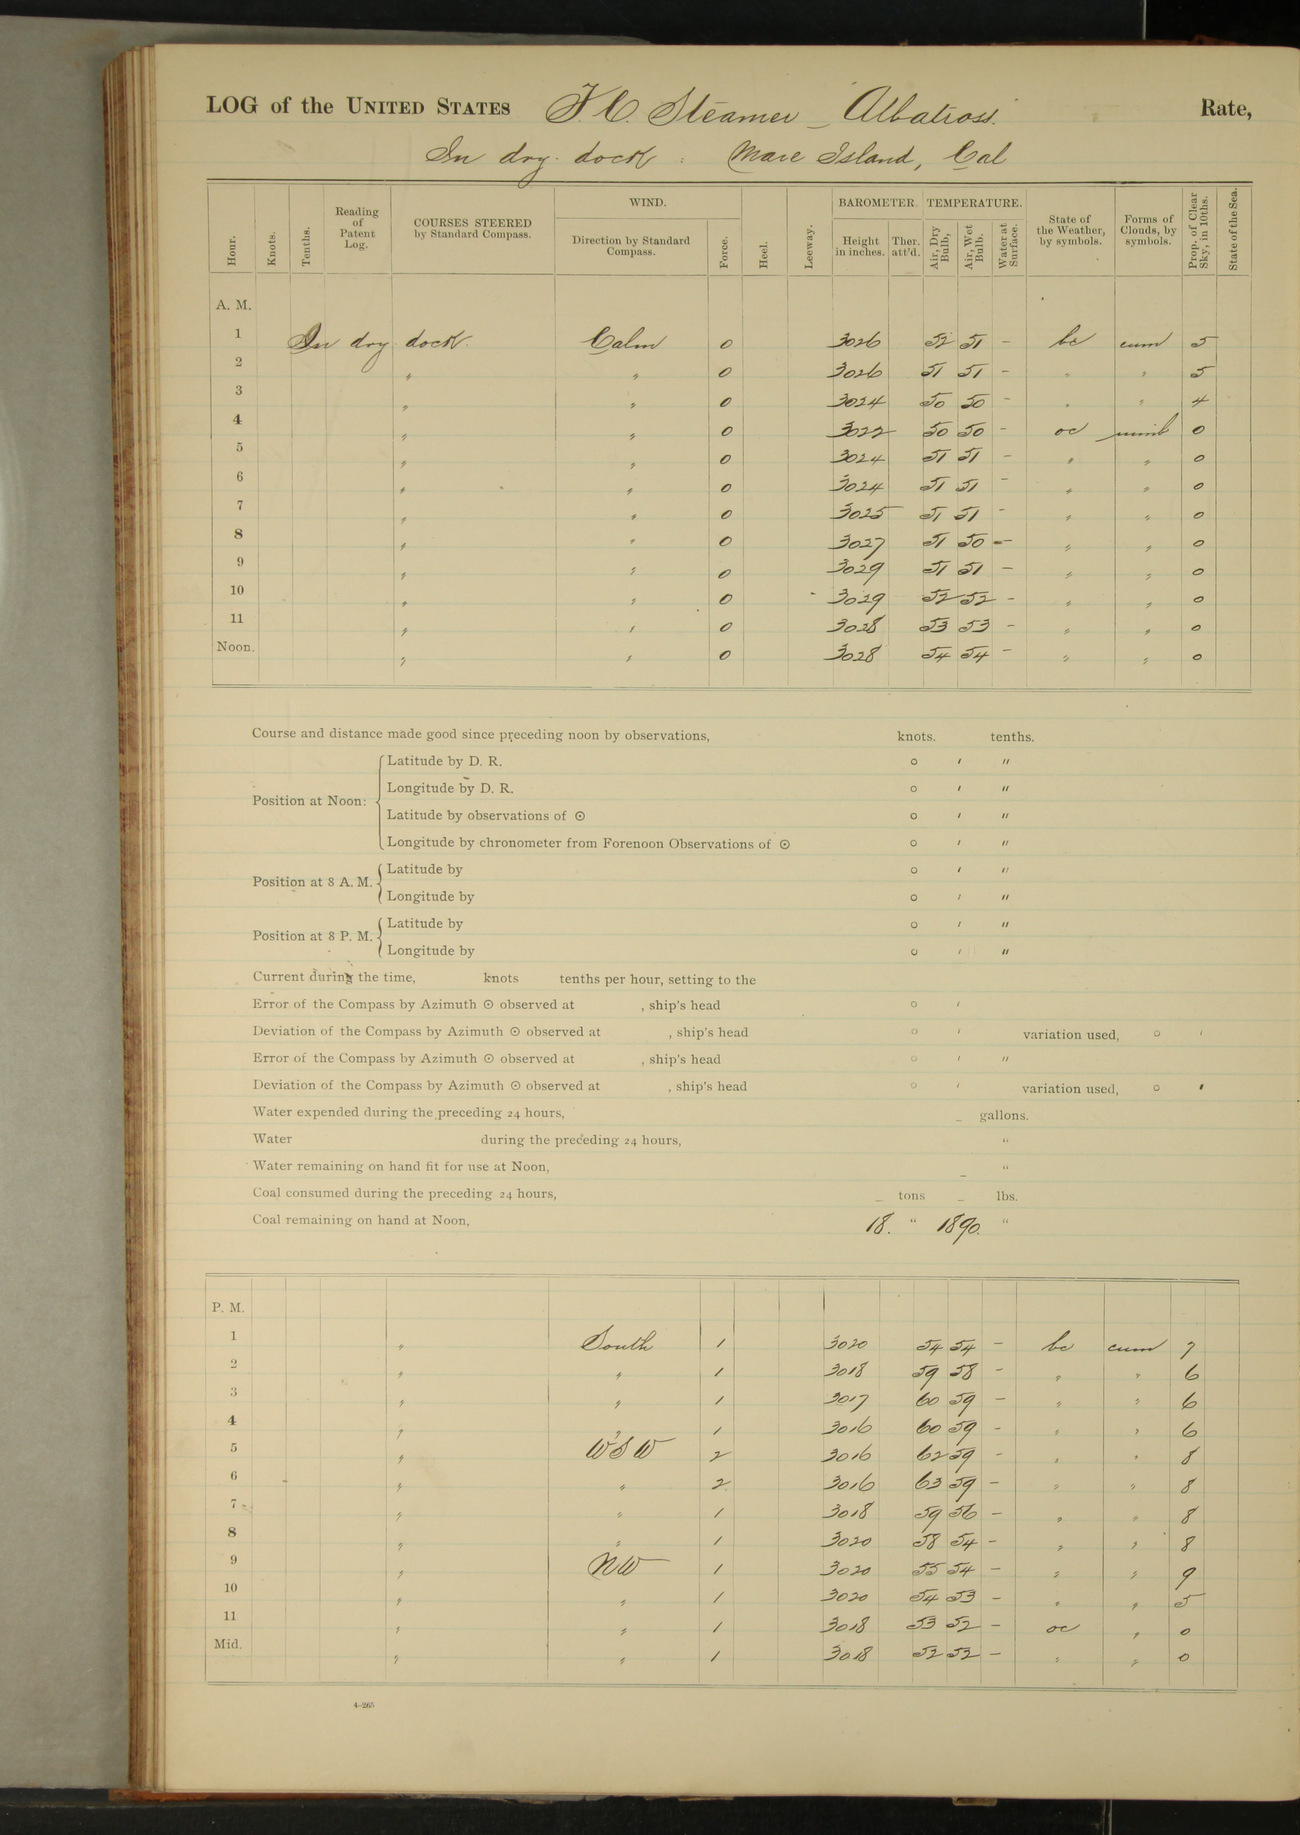 LOG of the UNITED STATES F. C. Steamer Albatross. Rate,
In dry dock : Mare Island, Cal
Hour. Knots. Tenths. Reading of Patent Log. COURSES STEERED by Standard Compass. WIND. Direction by Standard Compass. Force. Heel. Leeway. BAROMETER. Height in inches. Ther. att'd. TEMPERATURE. Air, Dry Bulb. Air, Wet Bulb. Water at Surface. State of the Weather, by symbols. Forms of Clouds, by symbols. Prop. of Clear Sky, in 10ths. State of the Sea.
A. M.
1 In dry dock. Calm 0 3026 52 51 - bc cum 5
2 " " 0 3026 51 51 - " " 5
3 " " 0 3024 50 50 - " " 4
4 " " 0 3022 50 50 - oc nimb 0
5 " " 0 3024 51 51 - " " 0
6 " " 0 3024 51 51 - " " 0
7 " " 0 3025 51 51 - " " 0
8 " " 0 3027 51 50 - " " 0
9 " " 0 3029 51 51 - " " 0
10 " " 0 3029 52 52 - " " 0
11 " " 0 3028 53 53 - " " 0
Noon. " " 0 3028 54 54 - " " 0
Course and distance made good since preceding noon by observations, knots. tenths.
Position at Noon:
Latitude by D. R. ° ′ ″
Longitude by D. R. ° ′ ″
Latitude by observations of ☉ ° ′ ″
Longitude by chronometer from Forenoon Observations of ☉ ° ′ ″
Position at 8 A. M.
Latitude by ° ′ ″
Longitude by ° ′ ″
Position at 8 P. M.
Latitude by ° ′ ″
Longitude by ° ′ ″
Current during the time, knots tenths per hour, setting to the
Error of the Compass by Azimuth ☉ observed at , ship's head ° ′
Deviation of the Compass by Azimuth ☉ observed at , ship's head ° ′ variation used, ° ′
Error of the Compass by Azimuth ☉ observed at , ship's head ° ′ ″
Deviation of the Compass by Azimuth ☉ observed at , ship's head ° ′ variation used, ° ′
Water expended during the preceding 24 hours, - gallons.
Water during the preceding 24 hours, "
Water remaining on hand fit for use at Noon, - "
Coal consumed during the preceding 24 hours, - tons - lbs.
Coal remaining on hand at Noon, 18. " 1890. "
P. M.
1 " South 1 3020 54 54 - bc cum 7
2 " " 1 3018 59 58 - " " 6
3 " " 1 3017 60 59 - " " 6
4 " " 1 3016 60 59 - " " 6
5 " WSW 2 3016 62 59 - " " 8
6 " " 2 3016 63 59 - " " 8
7 " " 1 3018 59 56 - " " 8
8 " " 1 3020 58 54 - " " 8
9 " NW 1 3020 55 54 - " " 9
10 " " 1 3020 54 53 - " " 5
11 " " 1 3018 53 52 - oc " 0
Mid. " " 1 3018 52 52 - " " 0
4-265